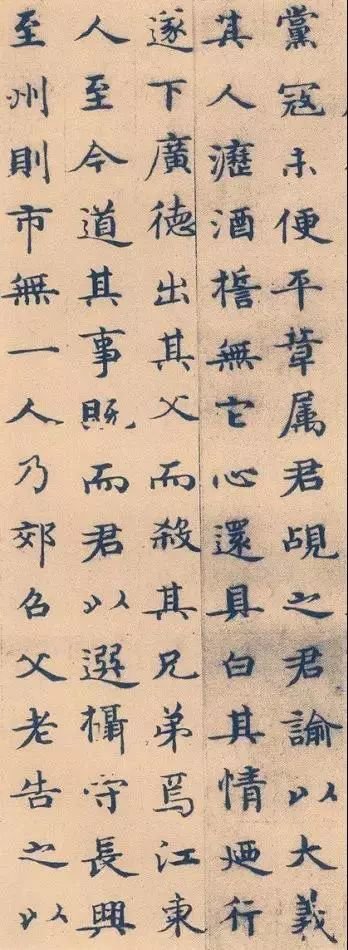 黨冦未便平章属君覘之君諭以大義
其人瀝酒誓無它心還具白其情迺行
遂下廣德出其父而殺其兄弟焉江東
人至今道其事既而君以選攝守長興
至州則市無一人乃郊召父老告之以